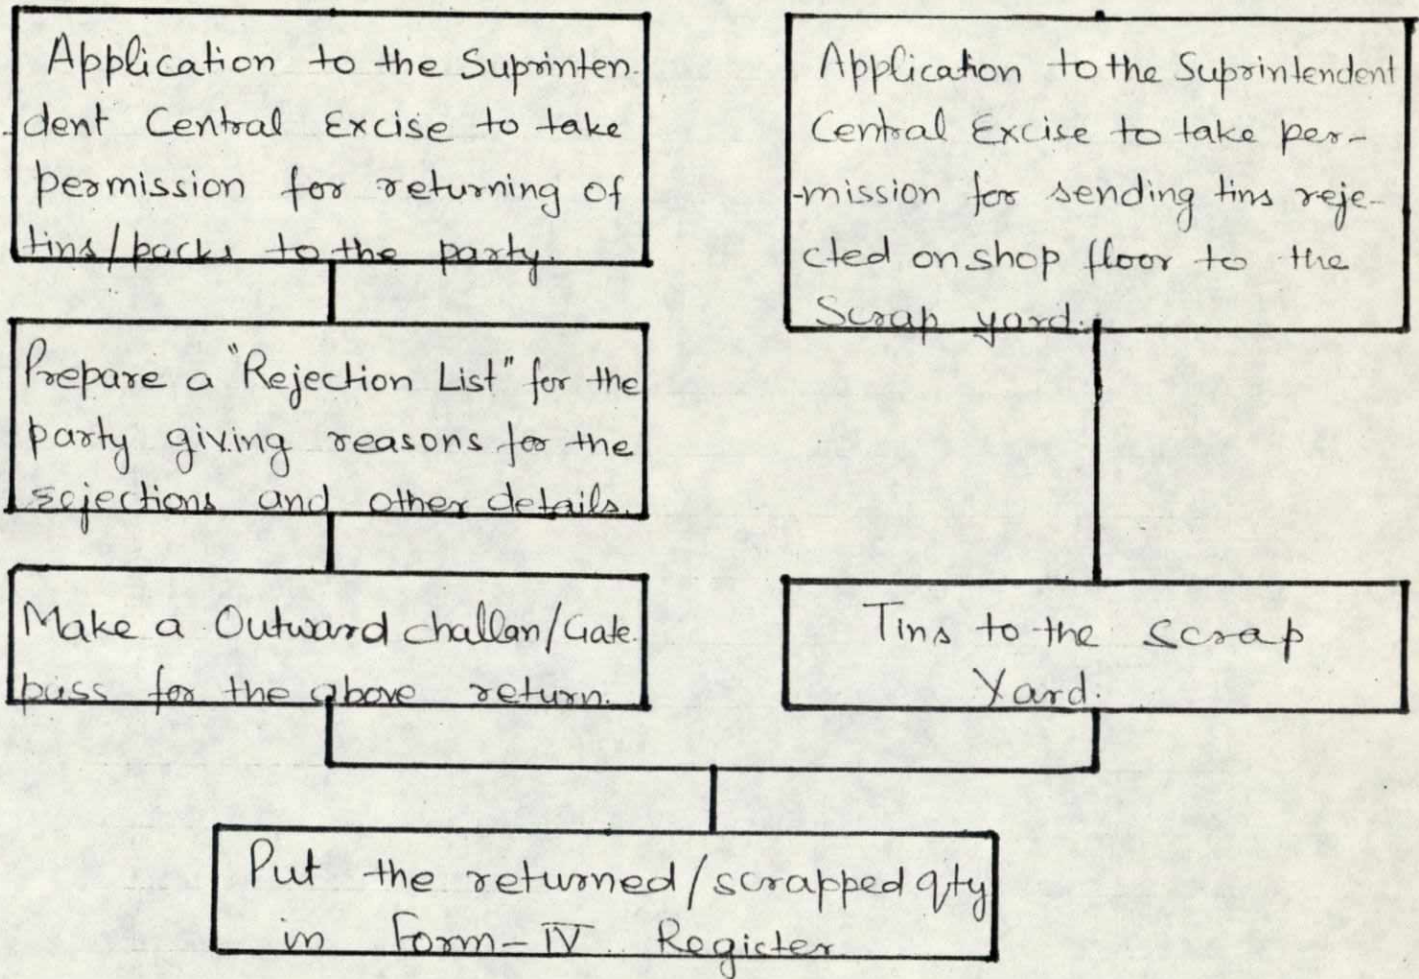 Application to the Suprinten-
-dent Central Excise to take
permission for returning of
tins/packs to the party.
Prepare a "Rejection List" for the
party giving reasons for the
rejections and other details.
Make a Outward challan/Gate
pass for the above return.
Application to the Suprintendent
Central Excise to take per-
-mission for sending tins reje-
cted on shop floor to the
Scrap yard.
Tins to the scrap
Yard.
Put the returned/scrapped qty
in Form-IV Register